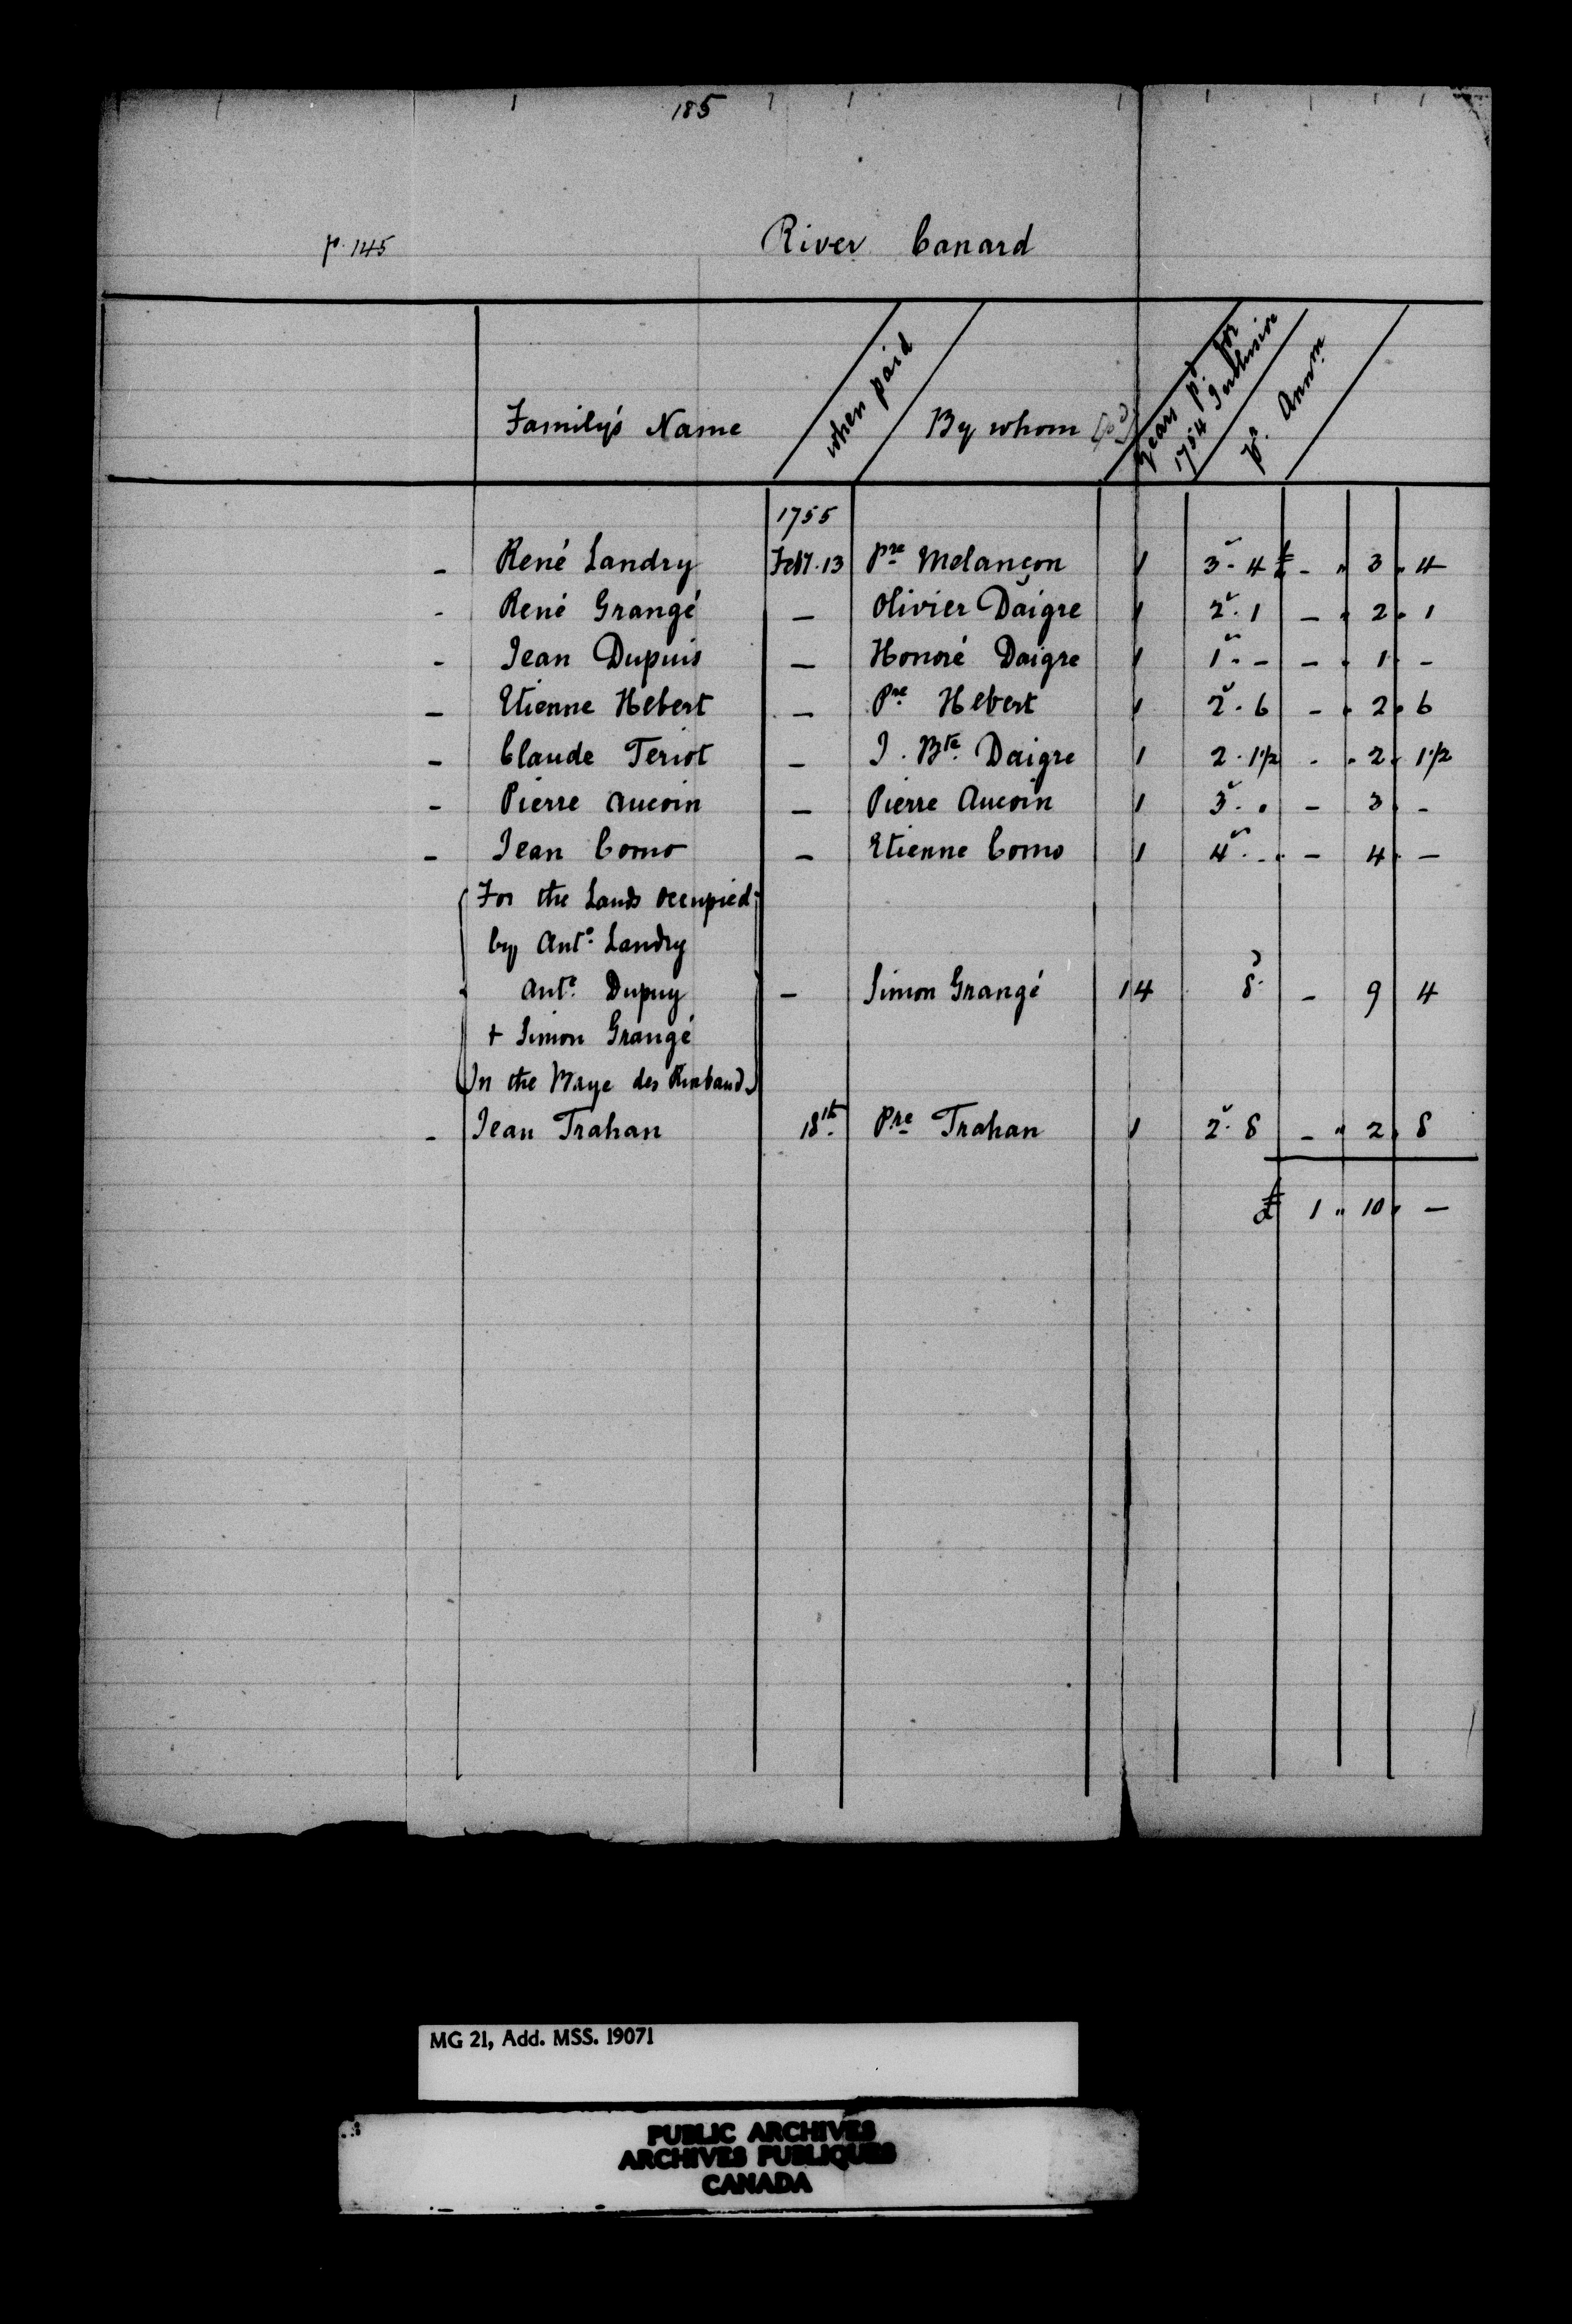 185
p. 145 River Canard
Family's Name when paid By whom pd years pd. for 1754 Inclusive pr. Annm
1755
- René Landry Feby. 13 Pre Melançon 1 3 - 4 £ - " 3 " 4
- René Grangé — Olivier Daigre 1 2 . 1 - . 2 . 1
- Jean Dupuis — Honoré Daigre 1 1 . - - . 1 . -
- Etienne Hebert — Pre Hebert 1 2 . 6 - . 2 . 6
- Claude Teriot — J. Bte. Daigre 1 2 . 1 1/2 - . 2 . 1 1/2
- Pierre Aucoin — Pierre Aucoin 1 3 . . - 3 . -
- Jean Como — Etienne Como 1 4 . - . - 4 . —
For the Lands occupied
by Ante. Landry
Ante. Dupuy — Simon Grangé 14 8d - 9 4
+ Simon Grangé
In the Praye des
- Jean Trahan 18th Pre Trahan 1 2 . 8 - " 2 . 8
£ 1 " 10 . —
MG 21, Add. MSS. 19071
PUBLIC ARCHIVES
ARCHIVES PUBLIQUES
CANADA